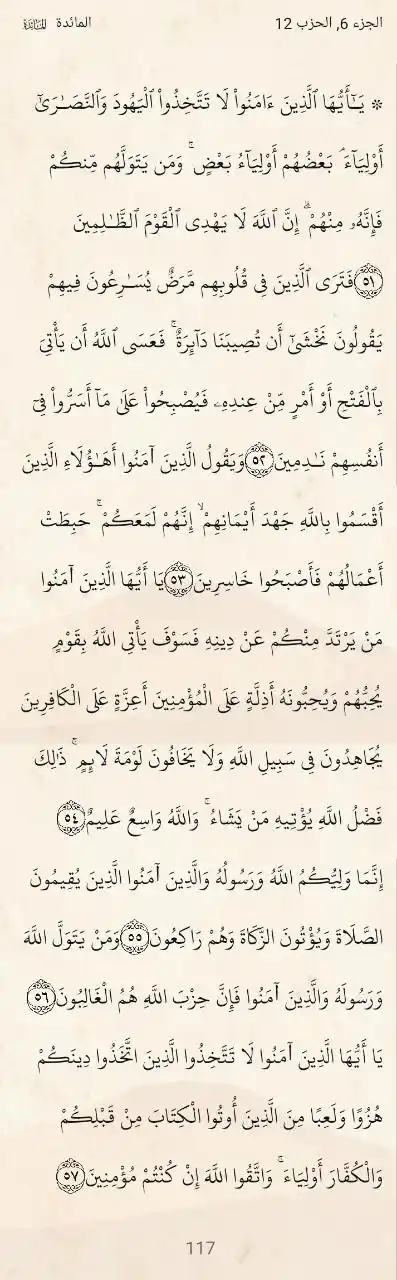 الجزء 6, الحزب 12 المائدة المائدة
۞ يَـٰٓأَيُّهَا ٱلَّذِينَ ءَامَنُوا۟ لَا تَتَّخِذُوا۟ ٱلْيَهُودَ وَٱلنَّصَـٰرَىٰٓ
أَوْلِيَآءَ ۘ بَعْضُهُمْ أَوْلِيَآءُ بَعْضٍ ۚ وَمَن يَتَوَلَّهُم مِّنكُمْ
فَإِنَّهُۥ مِنْهُمْ ۗ إِنَّ ٱللَّهَ لَا يَهْدِى ٱلْقَوْمَ ٱلظَّـٰلِمِينَ
٥١ فَتَرَى ٱلَّذِينَ فِى قُلُوبِهِم مَّرَضٌ يُسَـٰرِعُونَ فِيهِمْ
يَقُولُونَ نَخْشَىٰٓ أَن تُصِيبَنَا دَآئِرَةٌ ۚ فَعَسَى ٱللَّهُ أَن يَأْتِىَ
بِٱلْفَتْحِ أَوْ أَمْرٍ مِّنْ عِندِهِۦ فَيُصْبِحُوا۟ عَلَىٰ مَآ أَسَرُّوا۟ فِىٓ
أَنفُسِهِمْ نَـٰدِمِينَ ٥٢ وَيَقُولُ الَّذِينَ آمَنُوا أَهَـٰؤُلَاءِ الَّذِينَ
أَقْسَمُوا بِاللَّهِ جَهْدَ أَيْمَانِهِمْ ۙ إِنَّهُمْ لَمَعَكُمْ ۚ حَبِطَتْ
أَعْمَالُهُمْ فَأَصْبَحُوا خَاسِرِينَ ٥٣ يَا أَيُّهَا الَّذِينَ آمَنُوا
مَنْ يَرْتَدَّ مِنْكُمْ عَنْ دِينِهِ فَسَوْفَ يَأْتِي اللَّهُ بِقَوْمٍ
يُحِبُّهُمْ وَيُحِبُّونَهُ أَذِلَّةٍ عَلَى الْمُؤْمِنِينَ أَعِزَّةٍ عَلَى الْكَافِرِينَ
يُجَاهِدُونَ فِي سَبِيلِ اللَّهِ وَلَا يَخَافُونَ لَوْمَةَ لَائِمٍ ۚ ذَٰلِكَ
فَضْلُ اللَّهِ يُؤْتِيهِ مَنْ يَشَاءُ ۚ وَاللَّهُ وَاسِعٌ عَلِيمٌ ٥٤
إِنَّمَا وَلِيُّكُمُ اللَّهُ وَرَسُولُهُ وَالَّذِينَ آمَنُوا الَّذِينَ يُقِيمُونَ
الصَّلَاةَ وَيُؤْتُونَ الزَّكَاةَ وَهُمْ رَاكِعُونَ ٥٥ وَمَنْ يَتَوَلَّ اللَّهَ
وَرَسُولَهُ وَالَّذِينَ آمَنُوا فَإِنَّ حِزْبَ اللَّهِ هُمُ الْغَالِبُونَ ٥٦
يَا أَيُّهَا الَّذِينَ آمَنُوا لَا تَتَّخِذُوا الَّذِينَ اتَّخَذُوا دِينَكُمْ
هُزُوًا وَلَعِبًا مِنَ الَّذِينَ أُوتُوا الْكِتَابَ مِنْ قَبْلِكُمْ
وَالْكُفَّارَ أَوْلِيَاءَ ۚ وَاتَّقُوا اللَّهَ إِنْ كُنْتُمْ مُؤْمِنِينَ ٥٧
117